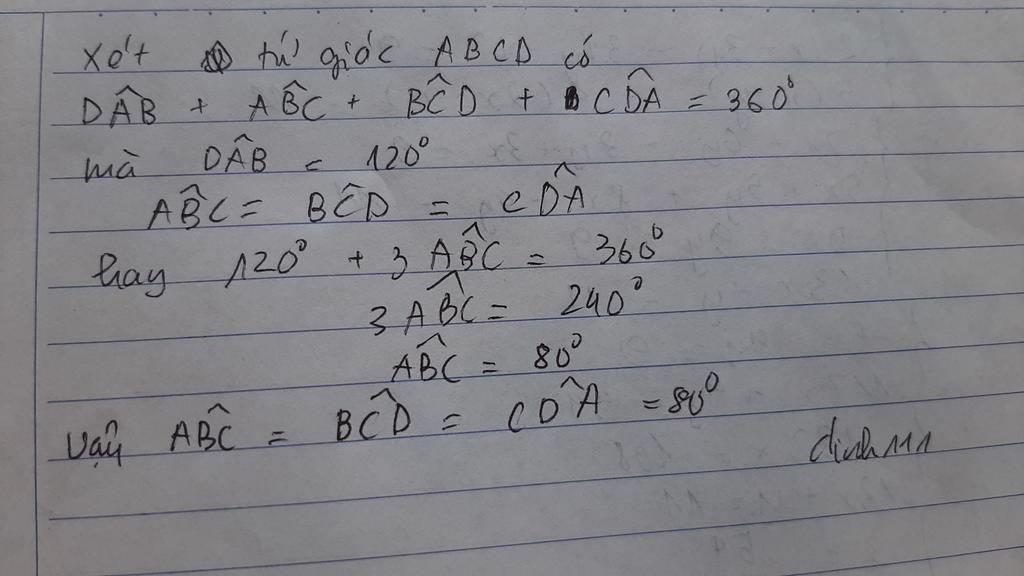 Xét tứ giác ABCD có
DÂB + AB̂C + BĈD + CD̂A = 360°
mà DÂB = 120°
AB̂C = BĈD = CD̂A
hay 120° + 3 AB̂C = 360°
3 AB̂C = 240°
AB̂C = 80°
Vậy AB̂C = BĈD = CD̂A = 80°
dinh111